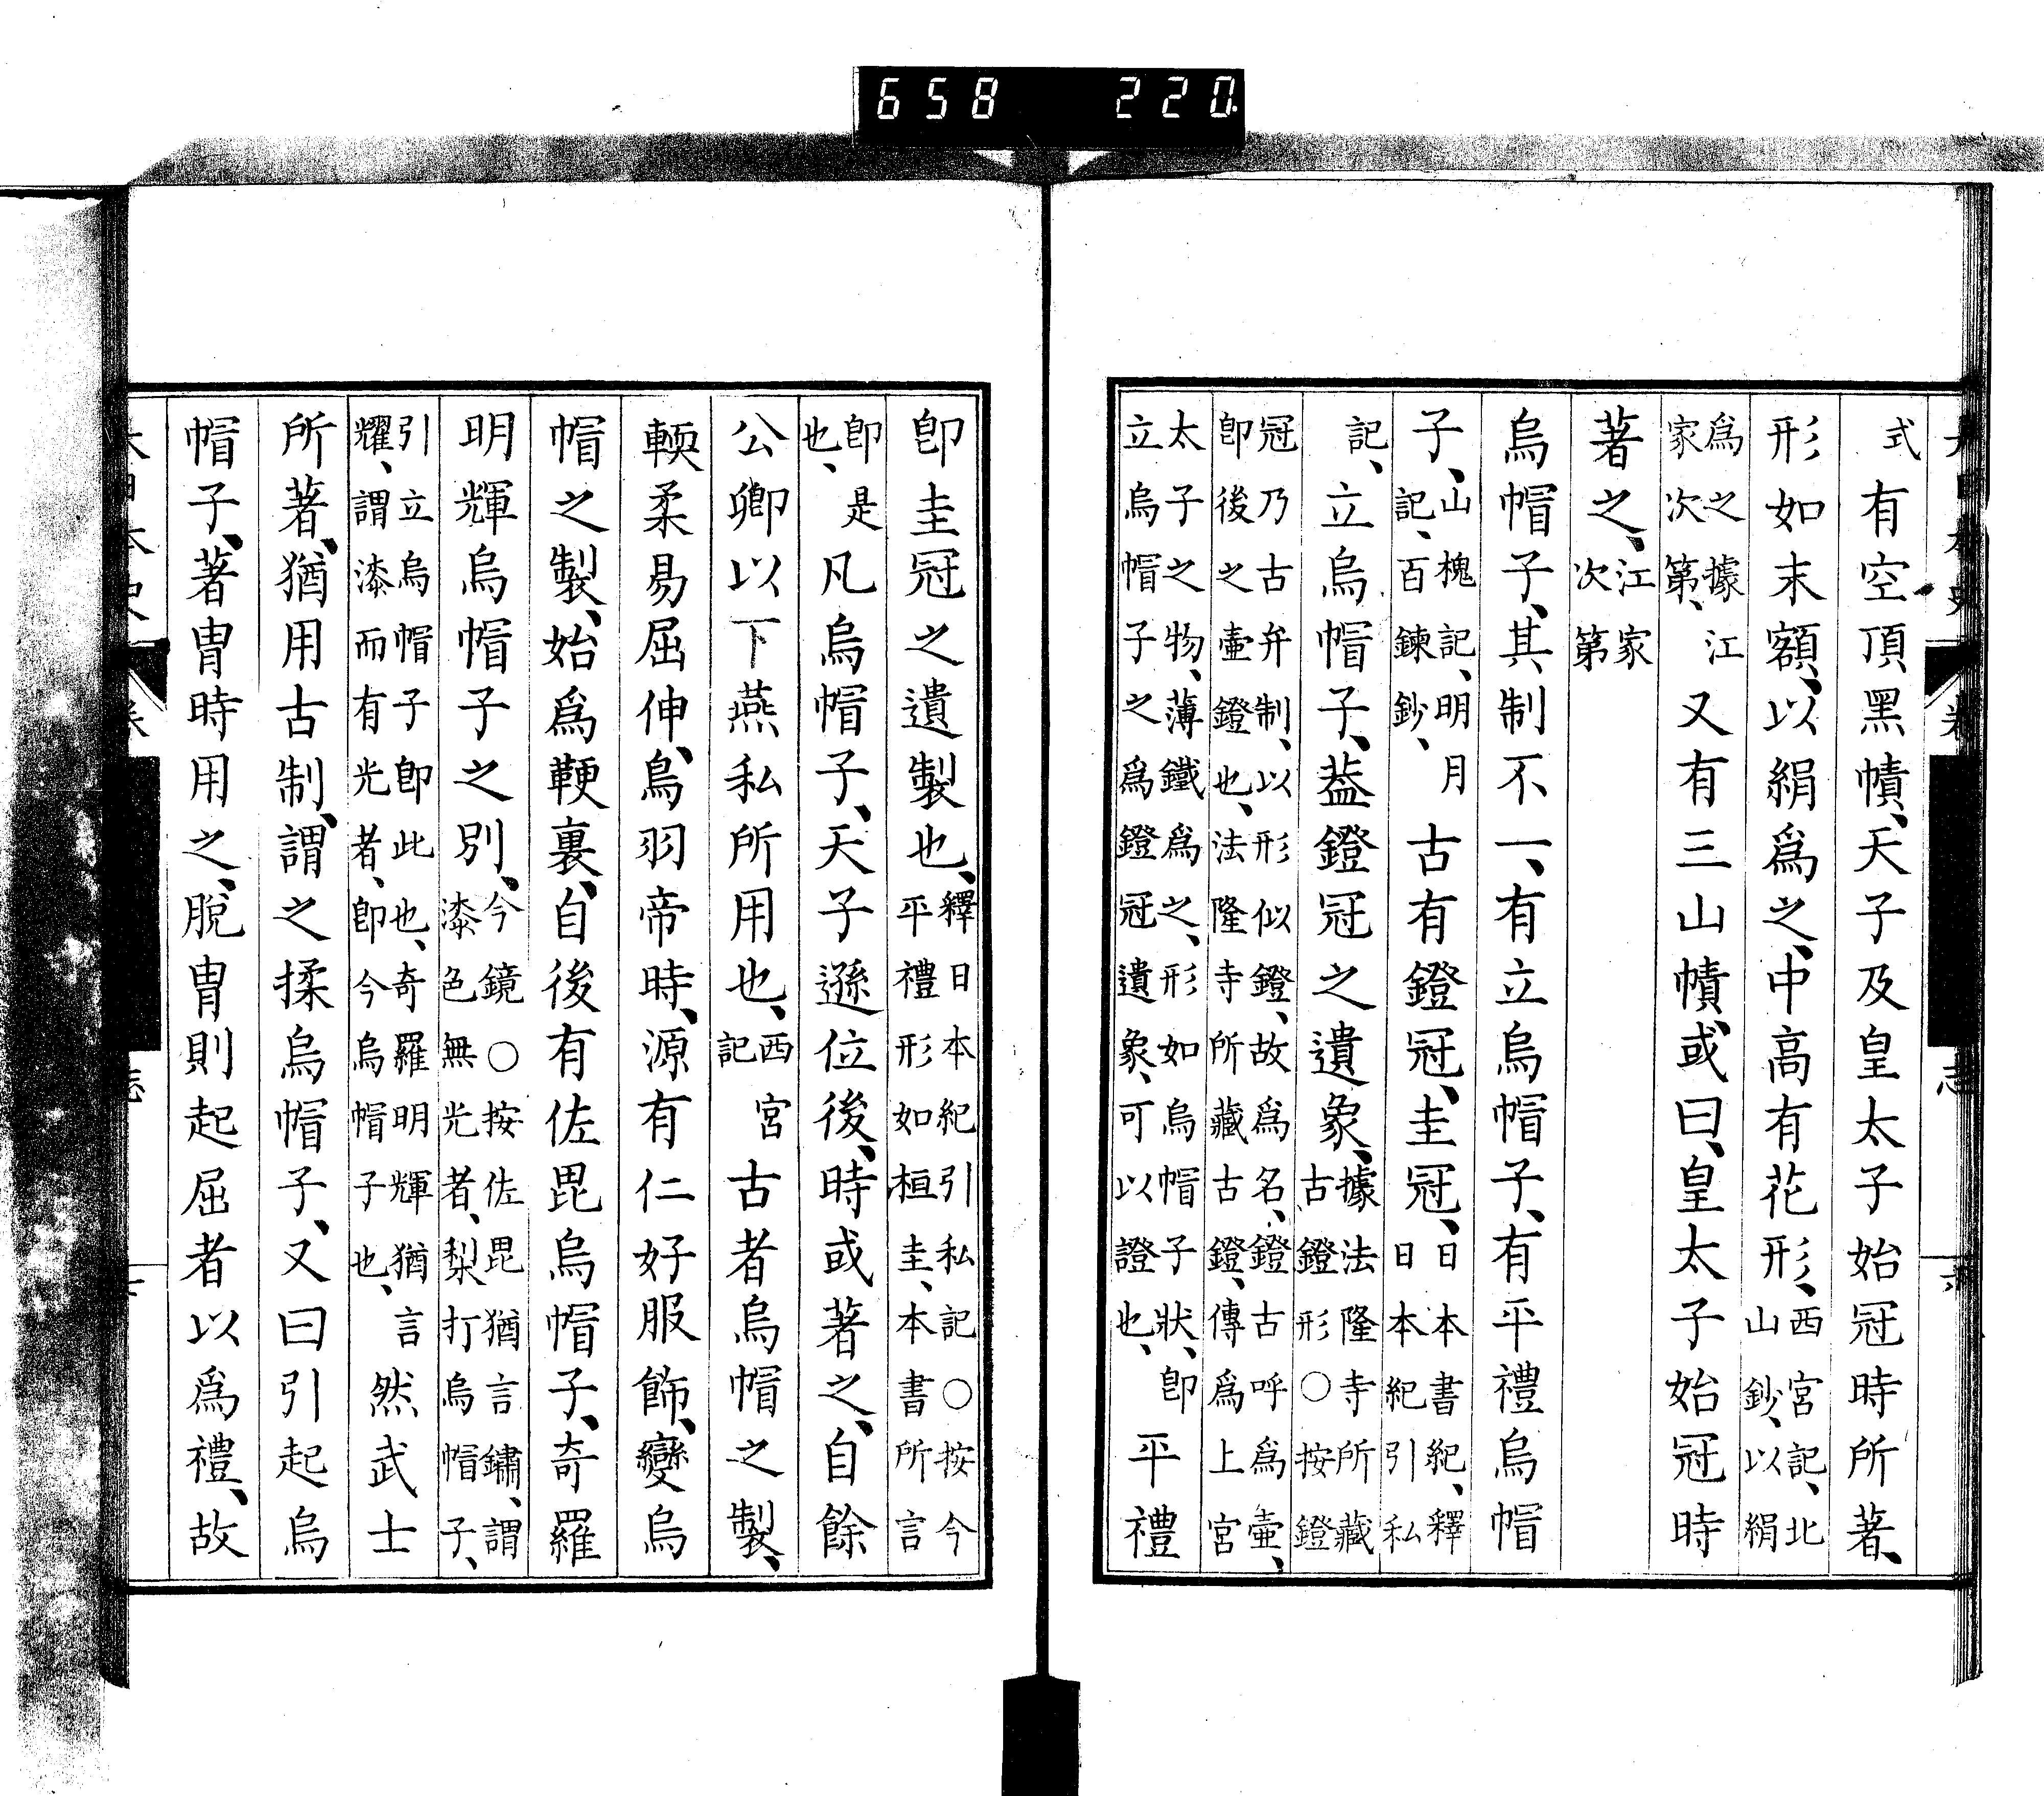 式有空頂黑幘、天子及皇太子始冠時所著、
形如末額、以絹爲之、中高有花形、西宮記、北山鈔、以絹
爲之據江家次第、又有三山幘、或曰、皇太子始冠時
著之、江家次第
烏帽子、其制不一、有立烏帽子、有平禮烏帽
子、山槐記、明月記、百鍊鈔、古有鐙冠、圭冠、日本書紀、釋日本紀引私
記、立烏帽子、葢鐙冠之遺象、據法隆寺所藏古鐙形○按鐙
冠乃古弁制、以形似鐙、故爲名、鐙古呼爲壷、卽後之壷鐙也、法隆寺所藏古鐙、傳爲上宮
太子之物、薄鐵爲之、形如烏帽子狀、卽立烏帽子之爲鐙冠遺象、可以證也、平禮
卽圭冠之遺製也、釋日本紀引私記○按今平禮形如桓圭、本書所言
卽是也、凡烏帽子、天子遜位後、時或著之、自餘
公卿以下燕私所用也、西宮記古者烏帽之製、
輭柔易屈伸、鳥羽帝時、源有仁好服飾、變烏
帽之製、始爲鞕裏、自後有佐毘烏帽子、奇羅
明輝烏帽子之別、今鏡○按佐毘猶言鏽、謂漆色無光者、梨打烏帽子、
引立烏帽子卽此也、奇羅明輝猶言耀、謂漆而有光者、卽今烏帽子也、然武士
所著、猶用古制、謂之揉烏帽子、又曰引起烏
帽子、著冑時用之、脫冑則起屈者以爲禮、故
658 220